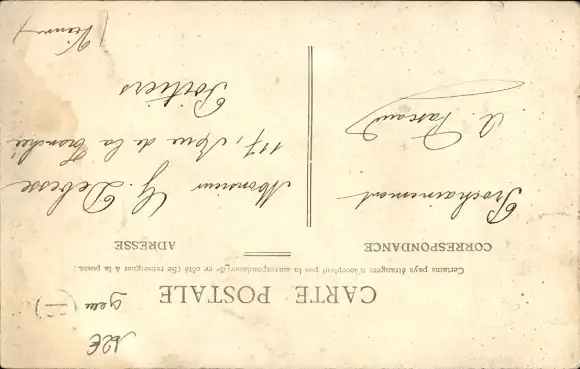 CARTE POSTALE
Certains pays étrangers n'acceptent pas la correspondance de ce côté (Se renseigner à la poste.
CORRESPONDANCE
ADRESSE
Prochainement
Monsieur G. Debesse
117, Rue de la Tranchée
Poitiers
(Vienne)